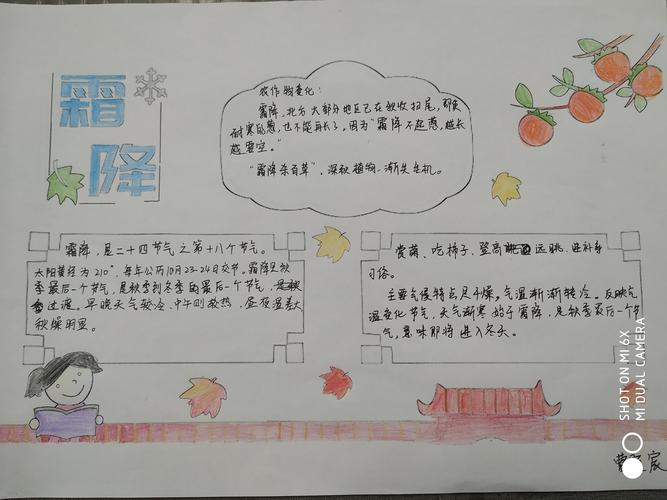 霜
降
农作物变化:
霜降,北方大部分地区已在秋收扫尾,即使
耐寒的葱,也不能再长了,因为"霜降不起葱,越长
越要空。"
"霜降杀百草",深秋植物一渐失生机。
霜降,是二十四节气之第十八个节气。
太阳黄经为210°,每年公历10月23-24日交节,霜降是秋
季最后一个节气,是秋季到冬季的最后一个节气,
过渡。早晚天气较冷、中午则较热,昼夜温差大
秋燥明显。
赏菊、吃柿子、登高远眺、进补等
习俗。
主要气候特点是干燥。气温渐渐转冷。反映气
温变化节气,天气渐寒始于霜降,是秋季最后一个节
气,意味即将进入冬天。
SHOT ON MI 6X
MI DUAL CAMERA
曹 家